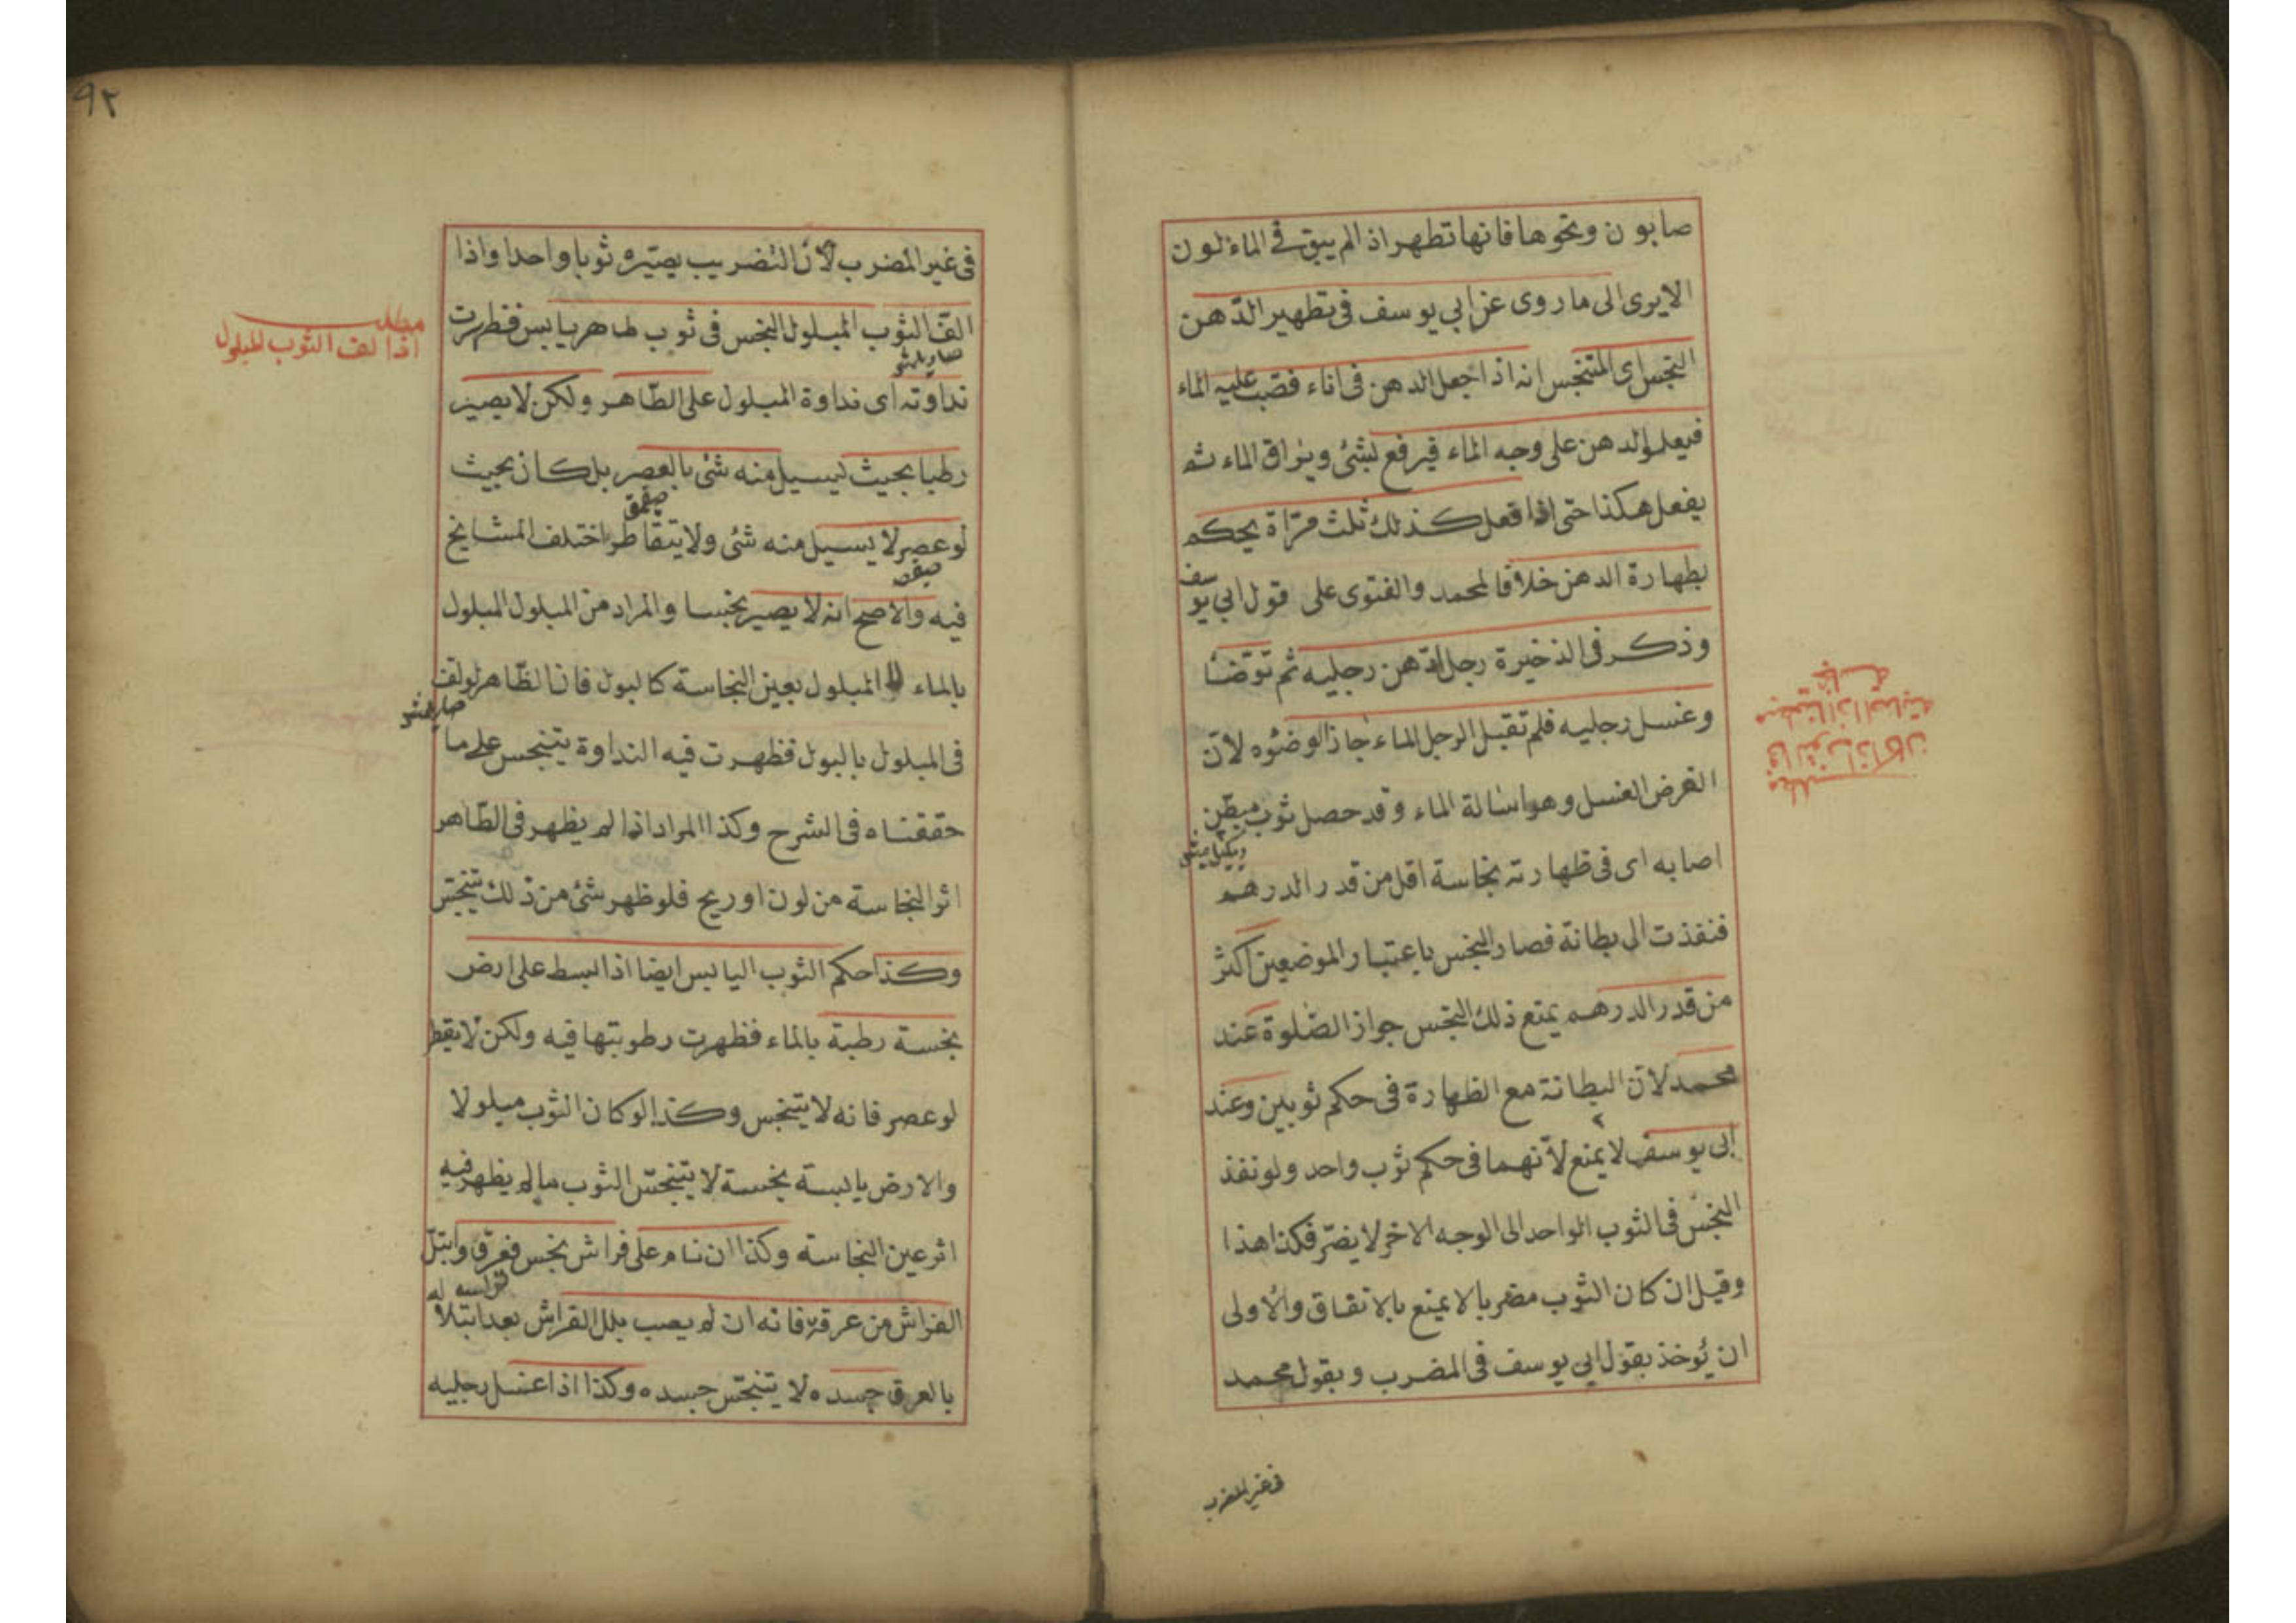 صابون ونحوها فانها تطهر اذ الم يبق في الماء لون
الا يرى الى ما روى عن ابي يوسف فى تطهير الدّهن
النجس اى المتنجس انه اذا جعل الدهن فى اناء فصبّ عليه الماء
فيعلوا الدهن على وجه الماء فيرفع بشئ ويراق الماء ثم
يفعل هكذا حتى اذا فعل كذلك ثلث مرّاة يحكم
بطهارة الدهن خلافا لمحمد والفتوى على قول ابي يوسف
وذكر فى الذخيرة رجل ادّهن رجليه ثم توضئا
وغسل رجليه فلم تقبل الرجل الماء جاز الوضوء لانّ
الفرض الغسل وهو اسالة الماء وقد حصل ثوب مبطّن
اصابه اى فى ظهارته نجاسة اقل من قدر الدرهم
فنفذت الى بطانة فصار النجس باعتبار الموضعين اكثر
من قدر الدرهم يمنع ذلك النجس جواز الصّلوة عند
محمد لانّ البطانة مع الظهارة فى حكم ثوبين وعند
ابى يوسف لا يمنع لانّهما فى حكم ثوب واحد ولو نفذ
النجس فى الثوب الواحد الى الوجه الاخر لا يضرّ فكذا هذا
وقيل ان كان الثوب مضربا لا يمنع بالاتفاق والاولى
ان يُوخذ بقول ابي يوسف فى المضرب وبقول محمد
فى غير المضرب
مطلب
فى الثوب اذا كان
مبطنا اذا اصابته
نجاسة
٩٢
فى غير المضرب لانّ التضريب يصيّره ثوبا واحدا واذا
لفّ الثوب المبلول النجس فى ثوب طاهر يابس فظهرت
نداوته اى نداوة المبلول على الطّاهر ولكن لا يصير
رطبا بحيث يسيل منه شئ بالعصر بل كان بحيث
لو عصر لا يسيل منه شئ ولا يتقاطر اختلف المشايخ
فيه والاصح انه لا يصير نجسا والمراد من المبلول المبلول
بالماء لا المبلول بعين النجاسة كالبول فان الطّاهر لو لفّ
فى المبلول بالبول فظهرت فيه النداوة يتنجس على ما
حققناه فى الشرح وكذا المراد اذا لم يظهر فى الطّاهر
اثر النجاسة من لون اوريح فلو ظهر شئ من ذلك يتنجّس
وكذا حكم الثوب اليابس ايضا اذا بسط على ارض
نجسة رطبة بالماء فظهرت رطوبتها فيه ولكن لا يقطر
لو عصر فانه لا يتنجس وكذا لو كان الثوب مبلولا
والارض يابسة نجسة لا يتنجّس الثوب مالم يظهر فيه
اثر عين النجاسة وكذا ان نام على فراش نجس فعرق وابتلّ
الفراش من عرقه فانه ان لم يصب بلل الفراش بعد ابتلا
بالعرق جسده لا يتنجّس جسده وكذا اذا غسل رجليه
مطلب
اذا لف الثوب المبلول